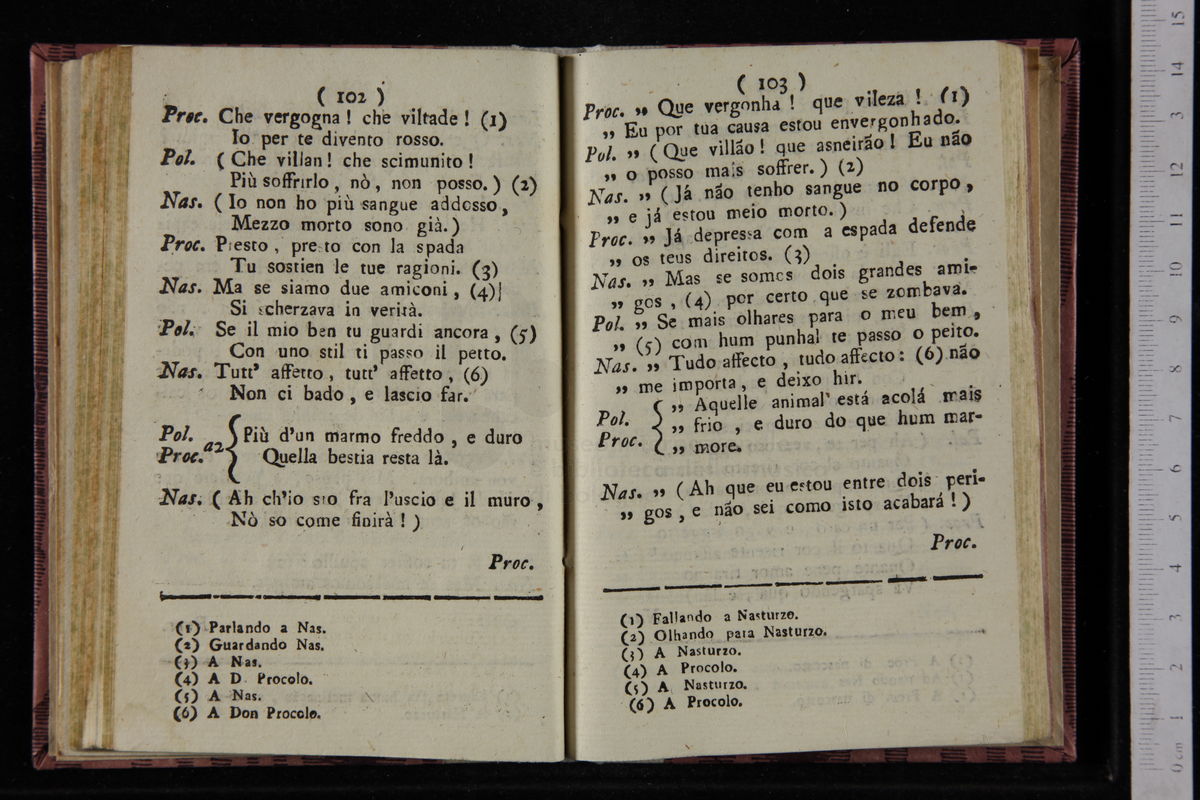 ( 102 )
Proc. Che vergogna ! che viltade ! (1)
Io per te divento rosso.
Pol. ( Che villan ! che scimunito !
Più soffrirlo , nò , non posso. ) (2)
Nas. ( Io non ho più sangue addosso ,
Mezzo morto sono già. )
Proc. Presto , presto con la spada
Tu sostien le tue ragioni. (3)
Nas. Ma se siamo due amiconi , (4)
Si scherzava in verità.
Pol. Se il mio ben tu guardi ancora , (5)
Con uno stil ti passo il petto.
Nas. Tutt' affetto , tutt' affetto , (6)
Non ci bado , e lascio far.
Pol. Proc. a2 { Più d'un marmo freddo , e duro
Quella bestia resta là.
Nas. ( Ah ch'io sto fra l'uscio e il muro ,
Nò so come finirà ! )
Proc.
(1) Parlando a Nas.
(2) Guardando Nas.
(3) A Nas.
(4) A D. Procolo.
(5) A Nas.
(6) A Don Procolo.
( 103 )
Proc. ,, Que vergonha ! que vileza ! (1)
,, Eu por tua causa estou envergonhado.
Pol. ,, ( Que villão ! que asneirão ! Eu não
,, o posso mais soffrer. ) (2)
Nas. ,, ( Já não tenho sangue no corpo ,
,, e já estou meio morto. )
Proc. ,, Já depressa com a espada defende
,, os teus direitos. (3)
Nas. ,, Mas se somos dois grandes ami-
,, gos , (4) por certo que se zombava.
Pol. ,, Se mais olhares para o meu bem ,
,, (5) com hum punhal te passo o peito.
Nas. ,, Tudo affecto , tudo affecto : (6) não
,, me importa , e deixo hir.
Pol. Proc. { ,, Aquelle animal está acolá mais
,, frio , e duro do que hum mar-
,, more.
Nas. ,, ( Ah que eu estou entre dois peri-
,, gos , e não sei como isto acabará ! )
Proc.
(1) Fallando a Nasturzo.
(2) Olhando para Nasturzo.
(3) A Nasturzo.
(4) A Procolo.
(5) A Nasturzo.
(6) A Procolo.
0 cm 1 2 3 4 5 6 7 8 9 10 11 12 13 14 15